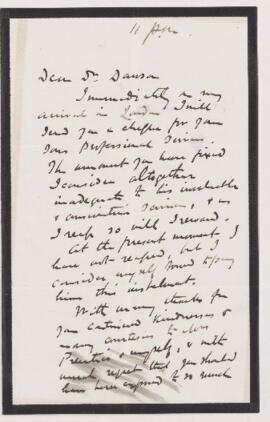 11 Apr.
Dear Dr. Dawson
Immediately on my
arrival in London I will
send you a cheque for your
Sons Professional Services.
The amount you have fixed
I consider altogether
inadequate to his invaluable
& conscientious Services, & as
I reap so will I reward.
At the present moment I
have not reaped, but I
consider myself bound to pay
him this instalment.
With many thanks for
your continued kindnesses &
many courtesies to Mrs
& myself, & with
much regret that you should
have been exposed to so much